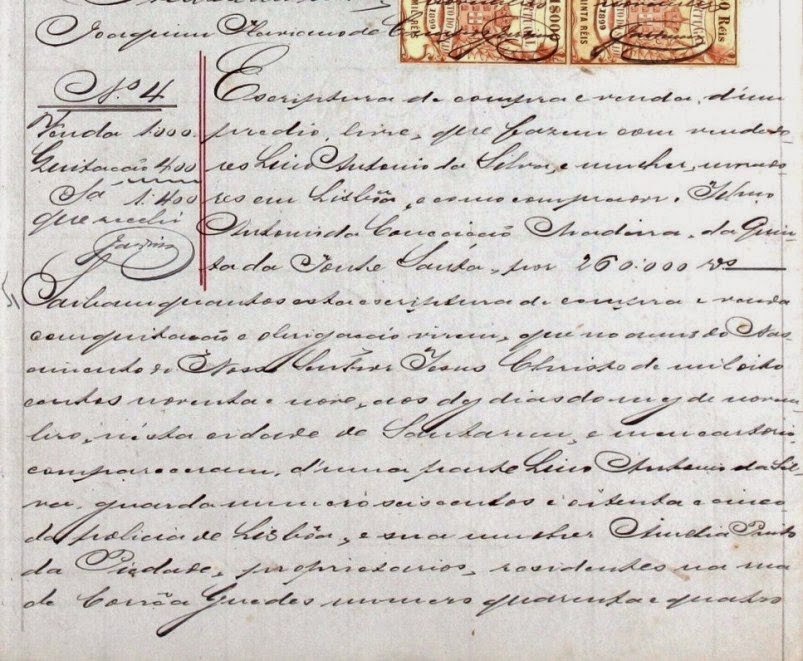 Joaquim Mariano de
Nº 4
Venda 1.000
Quitação 400
Sa 1.400
que recebi
Escriptura de compra e venda, d'um
predio, livre, que fazem com vendedo-
res Lino Antonio da Silva, e mulher, morado-
res em Lisbôa, e como comprador,
Antonio da Conceicão Madeira, da Quin-
ta da Fonte Santa, por 260.000 rs
Saibam quantos esta escriptura de compra e venda
com quitacão e obrigacão virem, que no anno do Nas-
cimento de Nosso Senhor Jesus Christo de mil oito
centos noventa e nove, aos dez dias do mez de novem-
bro, n'esta cidade de Santarem, e meu cartorio
compareceram, d'uma parte Lino Antonio da Sil-
va, guarda numero seiscentos e oitenta e cinco
da policia de Lisbôa, e sua mulher Amelia
da Piedade, proprietarios, residentes na rua
de Corrêa Guedes numero quarenta e quatro